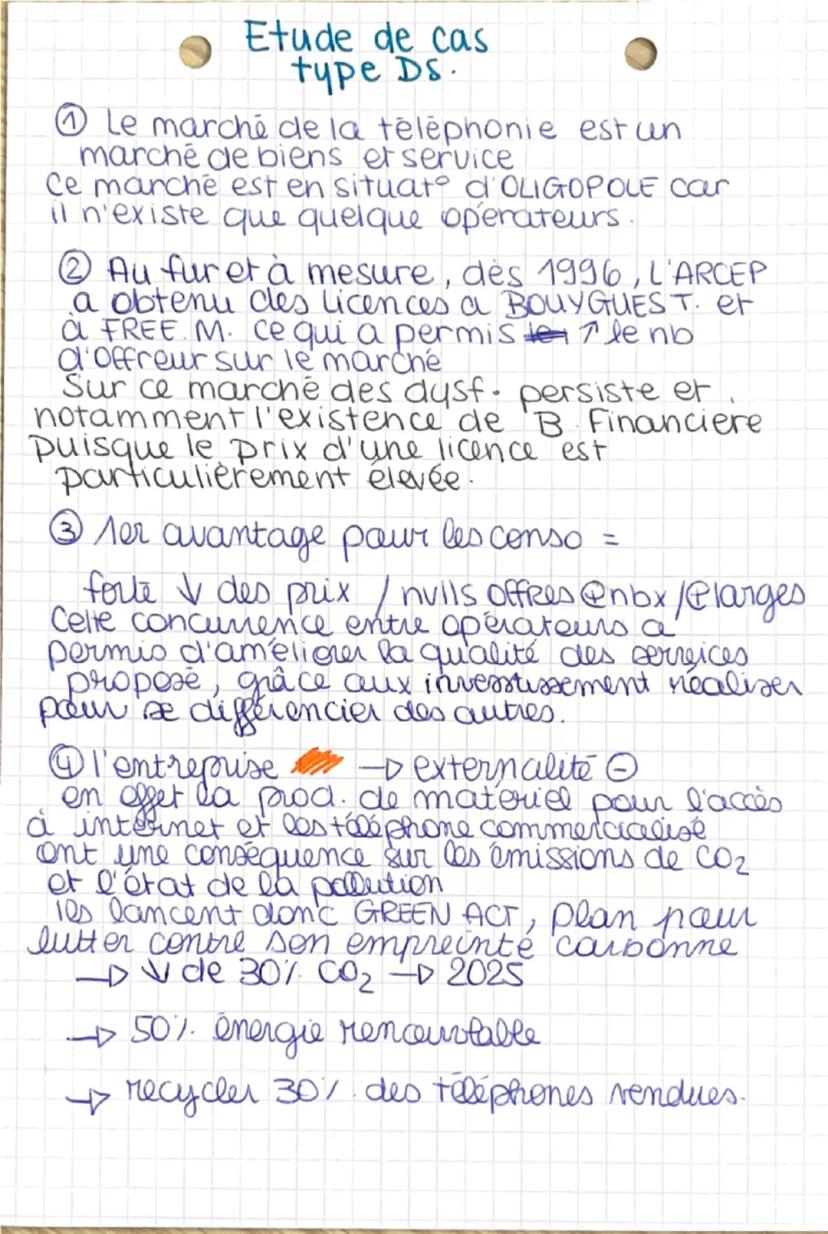 Etude de cas
type DS.
① Le marché de la téléphonie est un
marché de biens et service
Ce marché est en situat° d'OLIGOPOLE car
il n'existe que quelque opérateurs.
② Au fur et à mesure, dès 1996, L'ARCEP
a obtenu des licences a BOUYGUES T. et
à FREE M. ce qui a permis ↑ le nb
d'offreur sur le marché
Sur ce marché des dysf. persiste et
notamment l'existence de B Financiere
puisque le prix d'une licence est
particulièrement élevée.
③ 1er avantage pour les conso =
forte ↓ des prix / nvlls offres ⊕nbx/⊕larges
Cette concurrence entre opérateurs a
permis d'améliorer la qualité des services
proposé, grâce aux investissement réaliser
pour se différencier des autres.
④ l'entreprise → externalité ⊖
en effet la prod. de matériel pour l'accès
à internet et les téléphone commercialisé
ont une conséquence sur les émissions de CO₂
et l'état de la pollution
ils lancent donc GREEN ACT, plan pour
lutter contre son empreinte carbonne
→ ↓ de 30% CO₂ → 2025
→ 50% énergie renouvtable
→ recycler 30% des téléphones vendues.